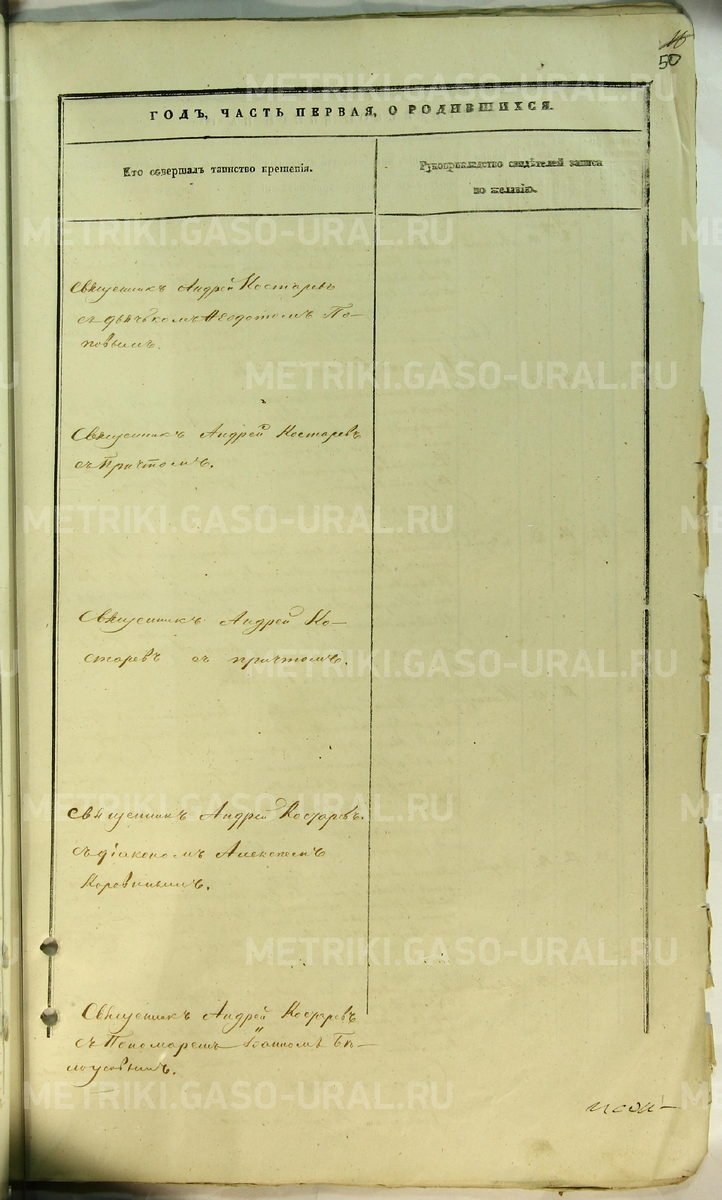 50
ГОДЪ, ЧАСТЬ ПЕРВАЯ, О РОДИВШИХСЯ.
Кто совершалъ таинство крещенія.
Рукоприкладство свидѣтелей записи
по желанію.
Священникъ Андрей Костаревъ
съ дьячькомъ Ѳеодотомъ По-
повымъ.
Священникъ Андрей Костаревъ
съ Причтомъ.
Священникъ Андрей Ко-
старевъ съ причтомъ.
Священникъ Андрей Костаревъ.
съ діакономъ Алексѣемъ
Коровинымъ.
Священникъ Андрей Костаревъ
съ Пономаремъ Іоанномъ Бѣ-
лоусовымъ.
METRIKI.GASO-URAL.RU